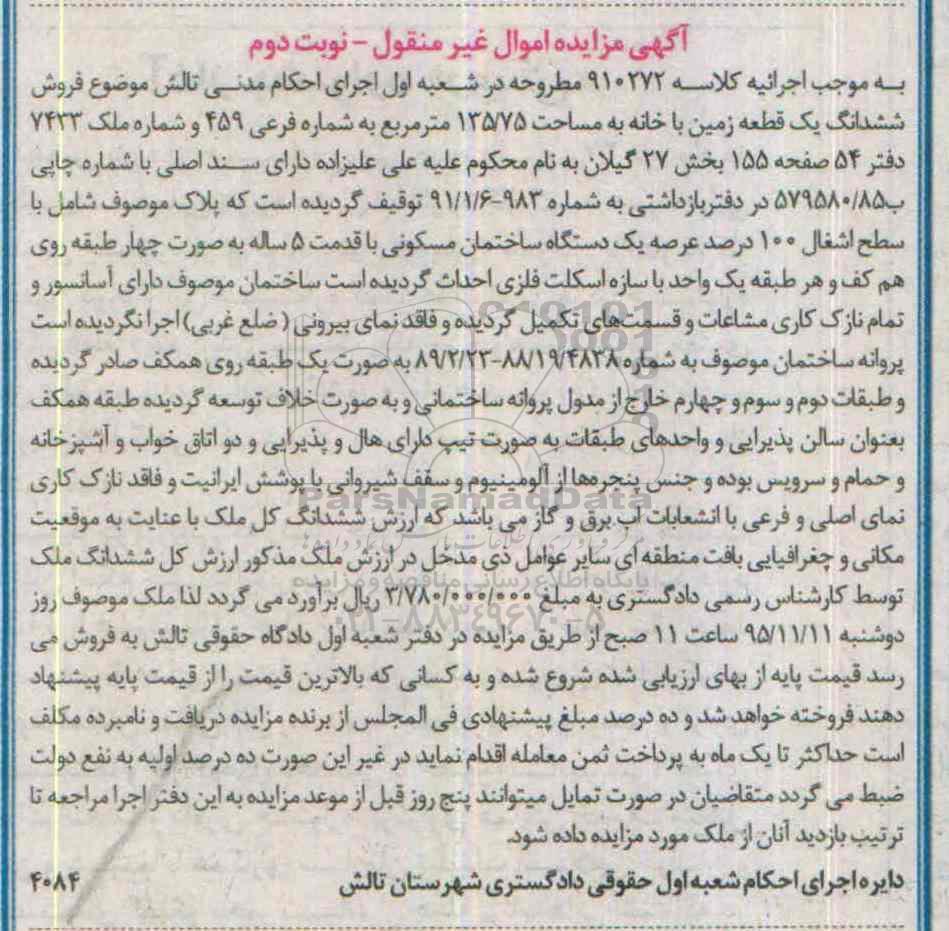 آگهی مزایده اموال غیر منقول - نوبت دوم
به موجب اجرائیه کلاسه ۹۱۰۲۷۲ مطروحه در شعبه اول اجرای احکام مدنی تالش موضوع فروش
ششدانگ یک قطعه زمین با خانه به مساحت ۱۳۵/۷۵ مترمربع به شماره فرعی ۴۵۹ و شماره ملک ۷۴۳۳
دفتر ۵۴ صفحه ۱۵۵ بخش ۲۷ گیلان به نام محکوم علیه علی علیزاده دارای سند اصلی با شماره چاپی
ب۵۷۹۵۸۰/۸۵ در دفتربازداشتی به شماره ۹۸۳-۹۱/۱/۶ توقیف گردیده است که پلاک موصوف شامل با
سطح اشغال ۱۰۰ درصد عرصه یک دستگاه ساختمان مسکونی با قدمت ۵ ساله به صورت چهار طبقه روی
هم کف و هر طبقه یک واحد با سازه اسکلت فلزی احداث گردیده است ساختمان موصوف دارای آسانسور و
تمام نازک کاری مشاعات و قسمت‌های تکمیل گردیده و فاقد نمای بیرونی (ضلع غربی) اجرا نگردیده است
پروانه ساختمان موصوف به شماره ۸۸/۱۹/۴۸۳۸-۸۹/۲/۲۳ به صورت یک طبقه روی همکف صادر گردیده
و طبقات دوم و سوم و چهارم خارج از مدول پروانه ساختمانی و به صورت خلاف توسعه گردیده طبقه همکف
بعنوان سالن پذیرایی و واحدهای طبقات به صورت تیپ دارای هال و پذیرایی و دو اتاق خواب و آشپزخانه
و حمام و سرویس بوده و جنس پنجره‌ها از آلومینیوم و سقف شیروانی با پوشش ایرانیت و فاقد نازک کاری
ParsNamadData
نمای اصلی و فرعی با انشعابات آب.برق و گاز می باشد که ارزش ششدانگ کل ملک با عنایت به موقعیت
مکانی و جغرافیایی بافت منطقه ای سایر عوامل ذی مدخل در ارزش ملک مذکور ارزش کل ششدانگ ملک
پایگاه اطلاع رسانی مناقصه و مزایده
توسط کارشناس رسمی دادگستری به مبلغ ۳/۷۸۰/۰۰۰/۰۰۰ ریال برآورد می گردد لذا ملک موصوف روز
۰۲۱-۸۸۳۴۹۶۷۰-۵
دوشنبه ۹۵/۱۱/۱۱ ساعت ۱۱ صبح از طریق مزایده در دفتر شعبه اول دادگاه حقوقی تالش به فروش می
رسد قیمت پایه از بهای ارزیابی شده شروع شده و به کسانی که بالاترین قیمت را از قیمت پایه پیشنهاد
دهند فروخته خواهد شد و ده درصد مبلغ پیشنهادی فی المجلس از برنده مزایده دریافت و نامبرده مکلف
است حداکثر تا یک ماه به پرداخت ثمن معامله اقدام نماید در غیر این صورت ده درصد اولیه به نفع دولت
ضبط می گردد متقاضیان در صورت تمایل میتوانند پنج روز قبل از موعد مزایده به این دفتر اجرا مراجعه تا
ترتیب بازدید آنان از ملک مورد مزایده داده شود.
دایره اجرای احکام شعبه اول حقوقی دادگستری شهرستان تالش ۴۰۸۴